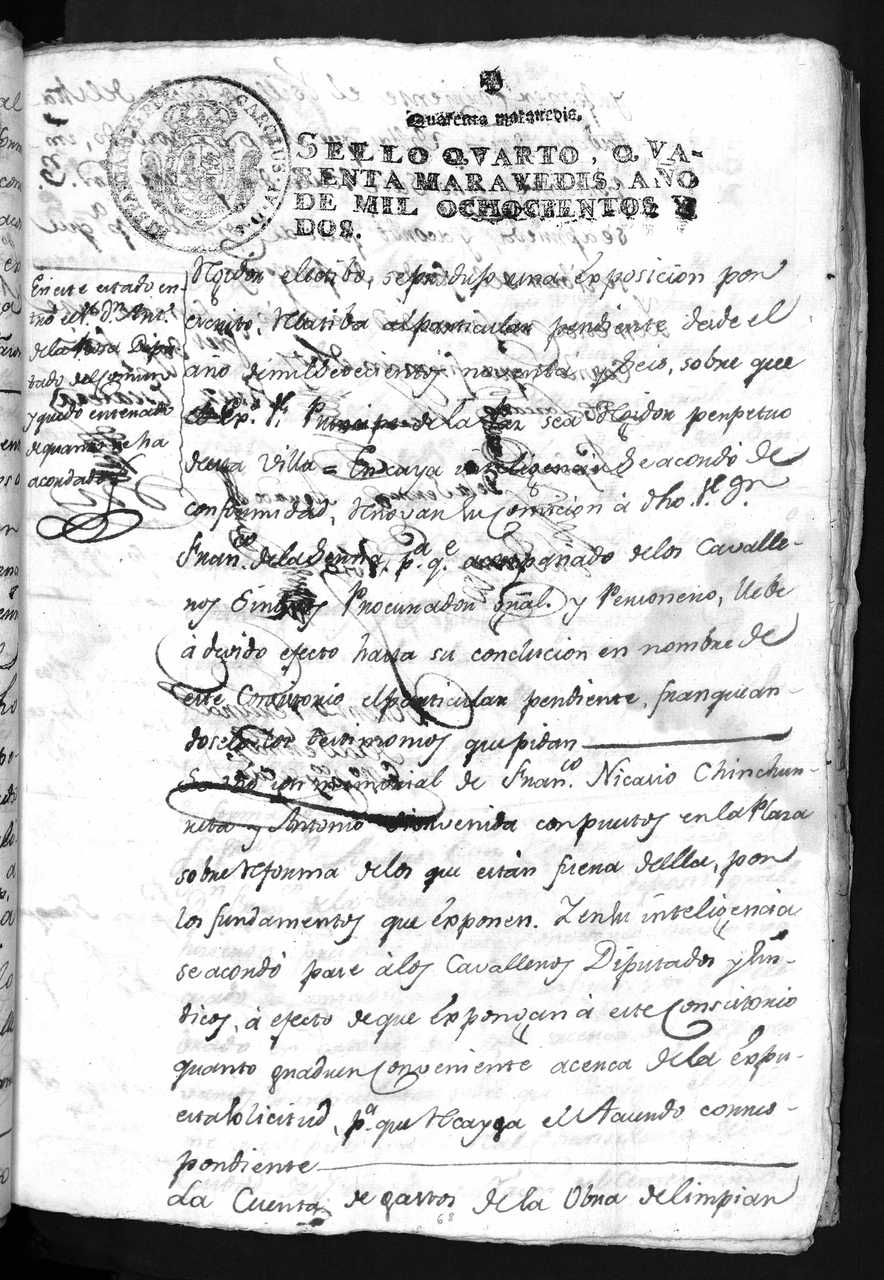 Quarenta maravedis.
SELLO QVARTO, QVA-
RENTA MARAVEDIS, AÑO
DE MIL OCHOCIENTOS Y
DOS.
CAROLUS
En este estado en
tró el Sr. Dn. Ant.
de la Diputado
tado del Comun
y quedó enterado
de quanto se ha
acordado
Rexidor electibo, se produjo una exposicion por
escrito, relatiba al particular pendiente desde el
año de mil setecientos noventa y seis, sobre que
el Ex.mo Sr. Principe de la Paz sea Rexidor perpetuo
de esta Villa = En cuya inteligencia se acordó de
conformidad, renovar su Comicion á dho. Sr. Dn.
Fran.co de la Peña, p.a q.e acompañado de los Cavalle-
ros Sindicos Procurador gral. y Personero, llebe
á devido efecto hasta su conclucion en nombre de
este Consistorio el particular pendiente, franquean-
dosele los testimonios que pidan
Se vió un memorial de Fran.co Nicasio Chinchur-
reta y Antonio Bienvenida con puestos en la Plaza
sobre reforma de los que están fuera de ella, por
los fundamentos que exponen. Y en su inteligencia
se acordó pase á los Cavalleros Diputados y Sin-
dicos, á efecto de que expongan á este Consistorio
quanto graduen conveniente acerca de la expu-
esta solicitud, p.a que recayga el Acuerdo corres-
pondiente
La Cuenta de gastos de la Obra de limpiar
68